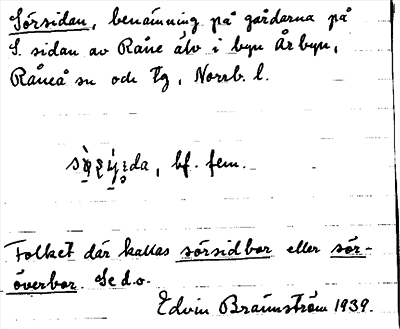 Sörsidan, benämning på gårdarna på
S. sidan av Råne älv i byn Årbyn,
Råneå sn och tg, Norrb. l.
da, bf. fem.
Folket där kallas sörsidbor eller sör-
överbor. Se d.o.
Edvin Brännström 1939.